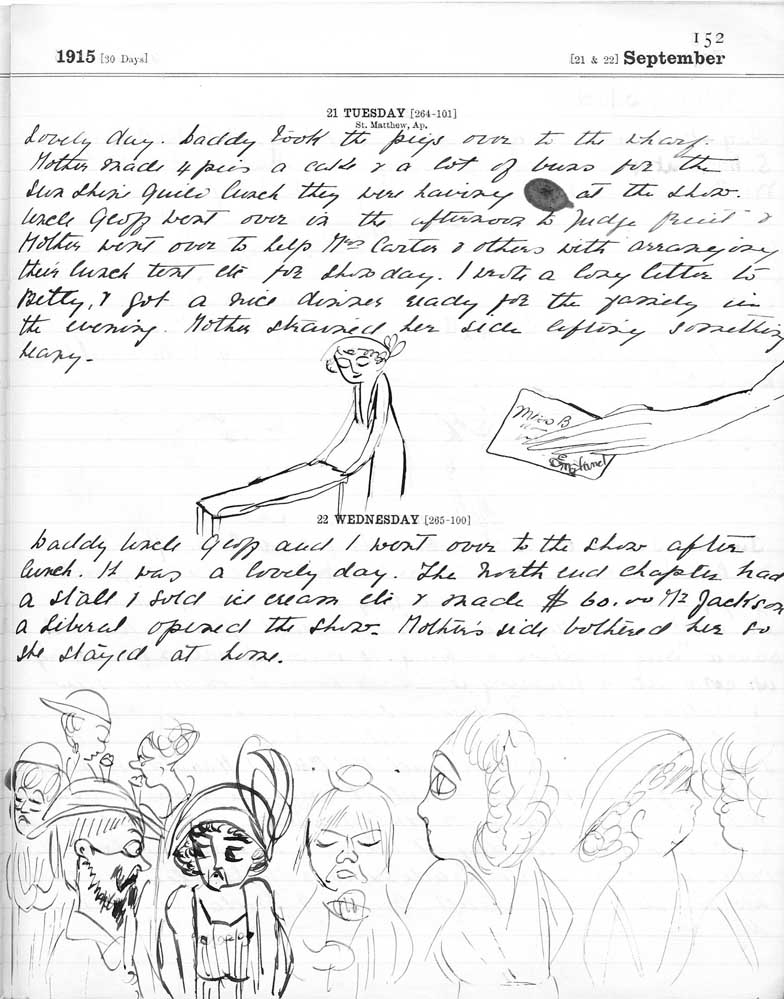 152
1915 [30 Days] [21 & 22] September
21 TUESDAY [264-101]
St. Matthew, Ap.
Lovely day. Daddy took the pigs over to the wharf.
Mother made 4 pies a cake & a lot of buns for the
Sun Shine Guild lunch they were having at the show.
Uncle Geoff went over in the afternoon to Judge fruit &
Mother went over to help Mrs Carter & others with arranging
their lunch tent etc for show day. I wrote a long letter to
Betty, & got a nice dinner ready for the family in
the evening. Mother strained her side lifting something
heavy.
Miss B
England
22 WEDNESDAY [265-100]
Daddy Uncle Geoff and I went over to the show after
lunch. It was a lovely day. The North end Chapter had
a stall & sold ice cream etc & made $60.00 Mr Jackson
a Liberal opened the show. Mother's side bothered her so
she stayed at home.